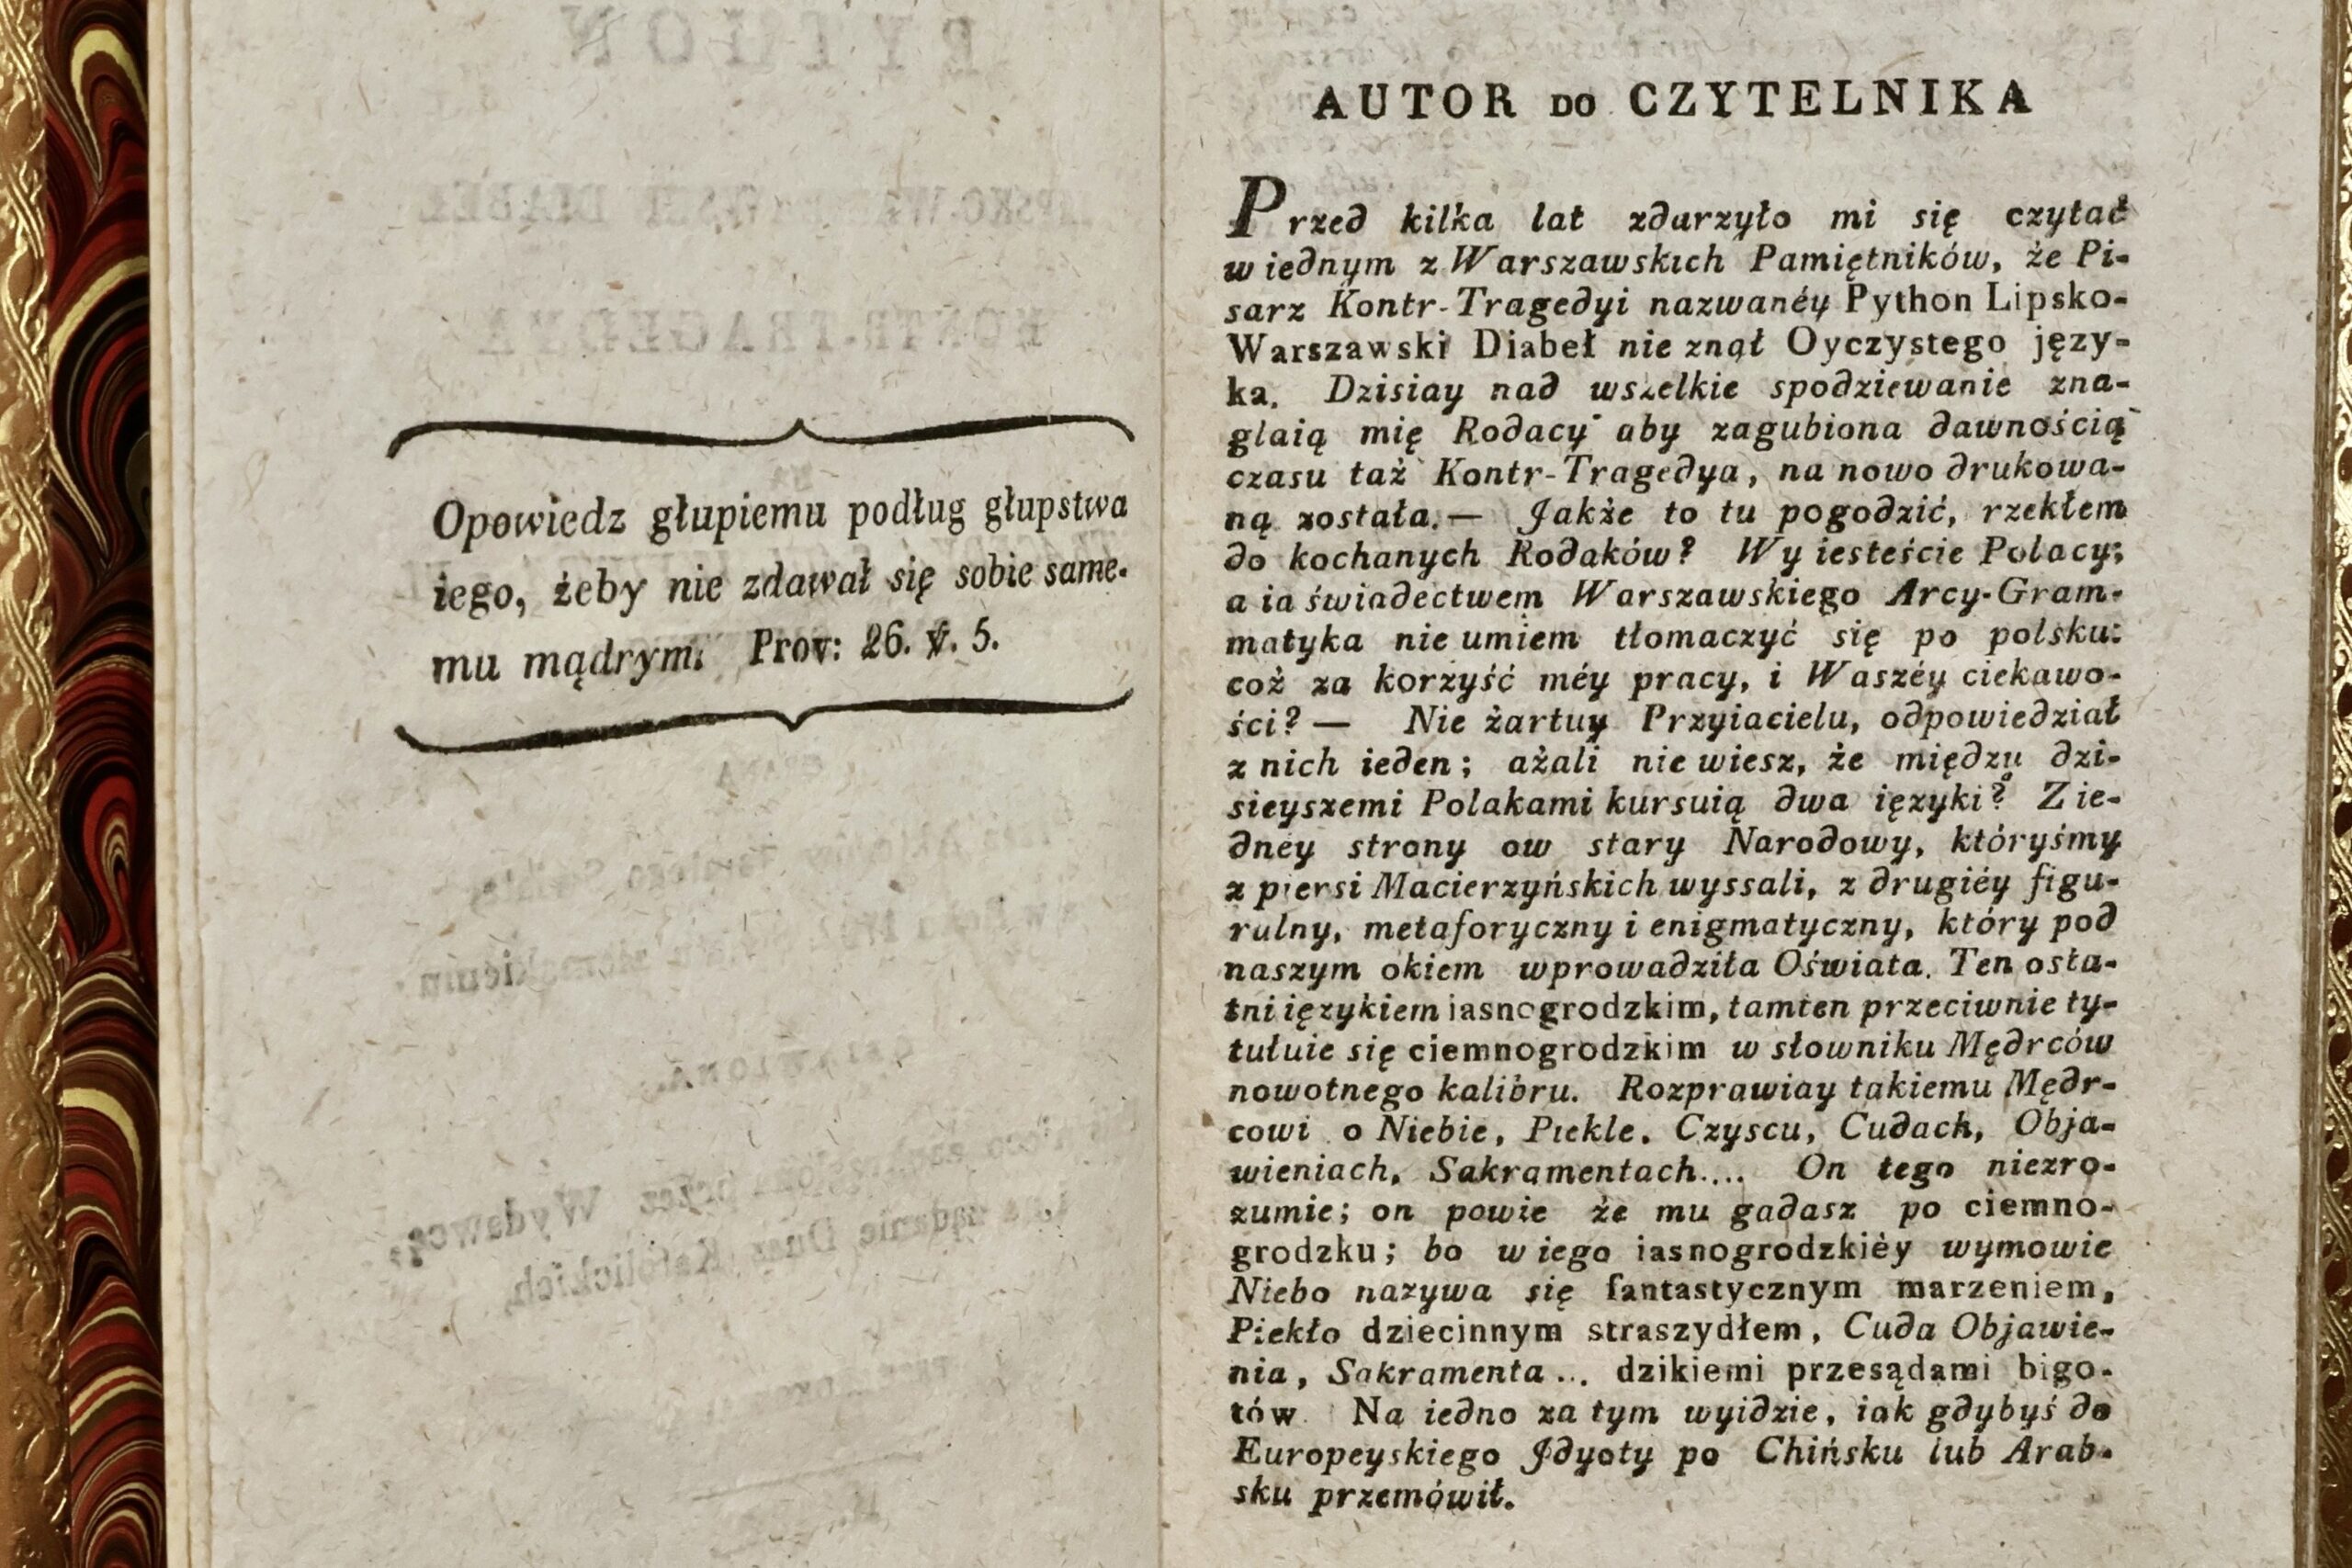 Opowiedz głupiemu podług głupstwa
iego, żeby nie zdawał się sobie same-
mu mądrym. Prov: 26. v. 5.
AUTOR DO CZYTELNIKA
Przed kilka lat zdarzyło mi się czytać
w iednym z Warszawskich Pamiętników, że Pi-
sarz Kontr-Tragedyi nazwanéy Python Lipsko-
Warszawski Diabeł nie znał Oyczystego języ-
ka. Dzisiay nad wszelkie spodziewanie zna-
glaią mię Rodacy aby zagubiona dawnością
czasu taż Kontr-Tragedya, na nowo drukowa-
ną została. — Jakże to tu pogodzić, rzekłem
do kochanych Rodaków? Wy iesteście Polacy;
a ia świadectwem Warszawskiego Arcy-Gram-
matyka nie umiem tłomaczyć się po polsku:
coż za korzyść méy pracy, i Waszéy ciekawo-
ści? — Nie żartuy Przyiacielu, odpowiedział
z nich ieden; ażali nie wiesz, że między dzi-
sieyszemi Polakami kursuią dwa ięzyki? Z ie-
dney strony ow stary Narodowy, któryśmy
z piersi Macierzyńskich wyssali, z drugiéy figu-
ralny, metaforyczny i enigmatyczny, który pod
naszym okiem wprowadziła Oświata. Ten osta-
tni ięzykiem iasnogrodzkim, tamten przeciwnie ty-
tułuie się ciemnogrodzkim w słowniku Mędrców
nowotnego kalibru. Rozprawiay takiemu Mędr-
cowi o Niebie, Piekle, Czyscu, Cudach, Obja-
wieniach, Sakramentach.... On tego niezro-
zumie; on powie że mu gadasz po ciemno-
grodzku; bo w iego iasnogrodzkiéy wymowie
Niebo nazywa się fantastycznym marzeniem,
Piekło dziecinnym straszydłem, Cuda Objawie-
nia, Sakramenta... dzikiemi przesądami bigo-
tów Na iedno za tym wyidzie, iak gdybyś do
Europeyskiego Jdyoty po Chińsku lub Arab-
sku przemówił.